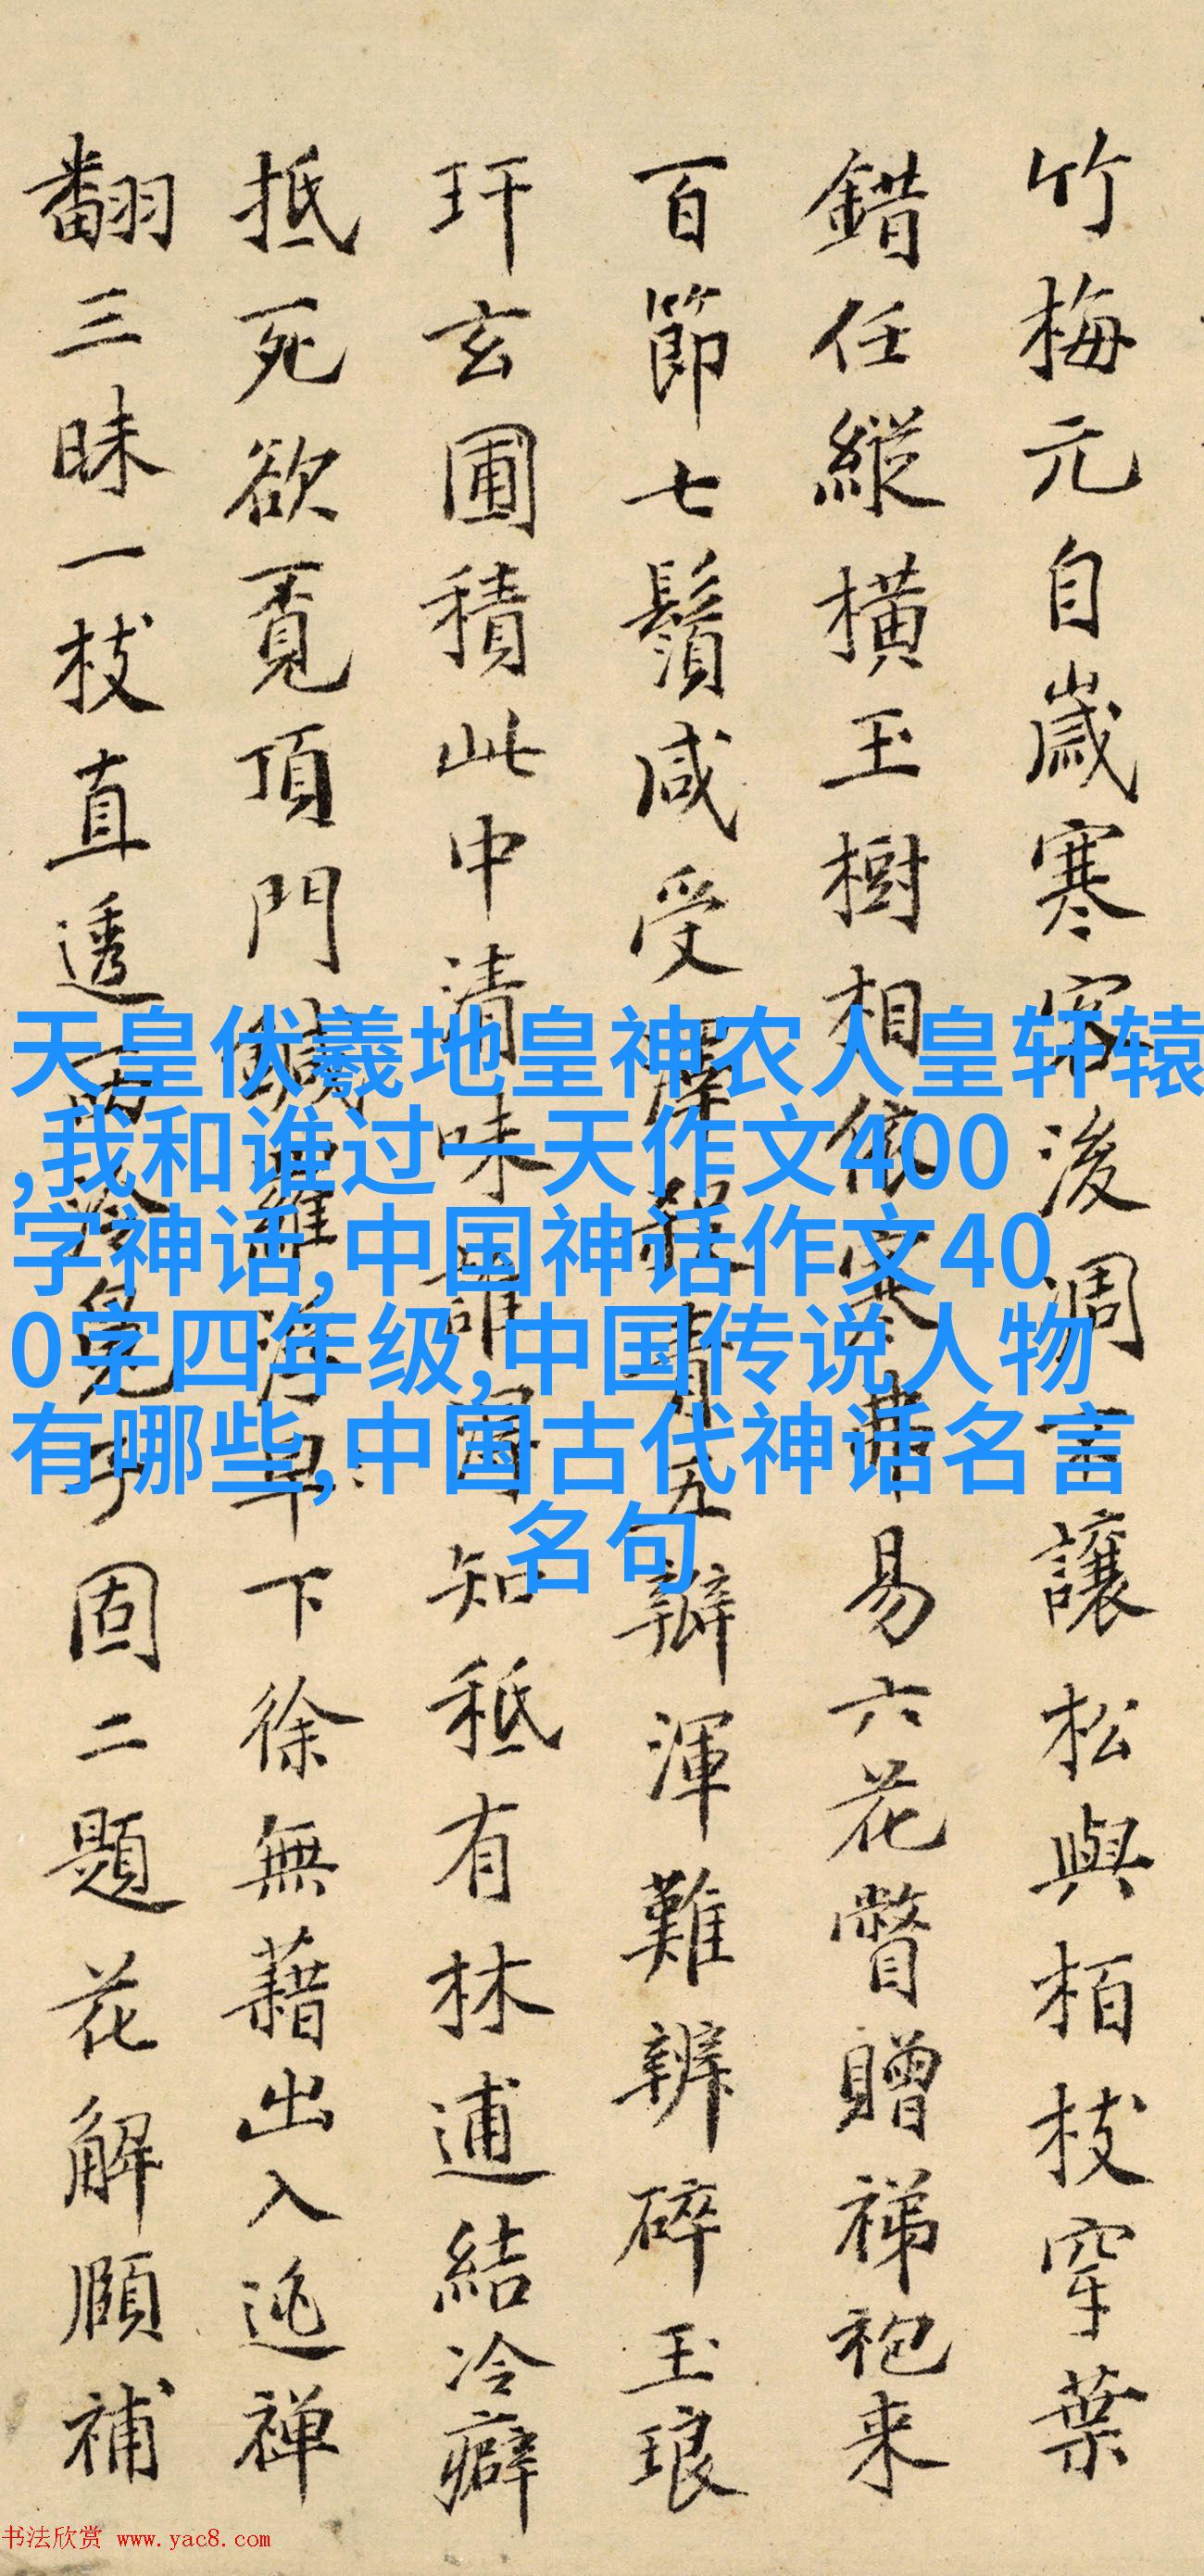 竹梅元自歲寒容後凋讓松與栢枝穿葉
錯任縱橫玉樹相依寒易六花瞥贈綈袍来
百節七鬚咸受青五瓣渾難辨碎玉琅
玕玄圃積此中清味誰知秪有林逋結冷癖
抵死欲覓頂門鍼羅浮早下徐無藉出入逃禅
翻三昧一枝直透固二題花解頤補
天皇伏羲地皇神农人皇轩辕
,我和谁过一天作文400
字神话,中国神话作文40
0字四年级,中国传说人物
有哪些,中国古代神话名言
名句
书法欣赏 www.yac8.com